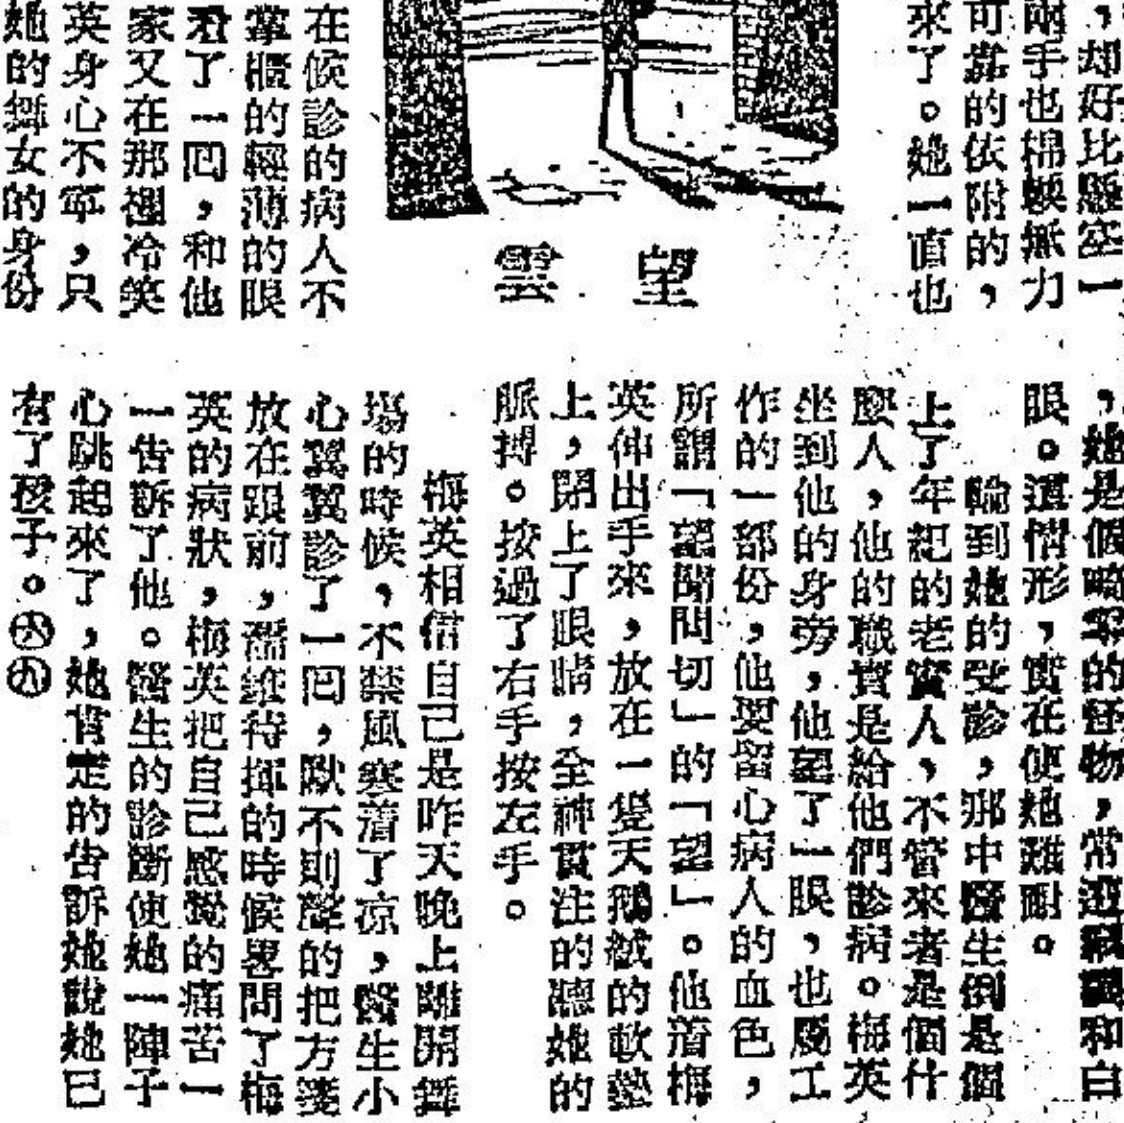 ，却好比懸空一
兩手也棉軟無力
可靠的依附的，
來了。她一直也
望雲
在候診的病人不
掌櫃的輕薄的眼
看了一囘，和他
家又在那裡冷笑
英身心不寧，只
她的舞女的身份
，她是個的怪物，常和白
眼。這情形，實在使她難耐。
輪到她的受診，那中醫生倒是個
上了年紀的老實人，不管來者是個什
麼人，他的職責是給他們診病。梅英
坐到他的身旁，他望了一眼，也屬工
作的一部份，他要留心病人的血色，
所謂「望聞問切」的「望」。他着梅
英伸出手來，放在一隻天鵝絨的軟墊
上，閉上了眼睛，全神貫注的聽她的
脈搏。按過了右手按左手。
梅英相信自己是昨天晚上離開舞
塲的時候，不禁風寒着了凉，醫生小
心翼翼診了一囘，默不則聲的把方箋
放在跟前，濡維待揮的時候畧問了梅
英的病狀，梅英把自己感覺的痛苦一
一告訴了他。醫生的診斷使她一陣子
心跳起來了，她肯定的告訴她說她已
有了孩子。㊅㊈